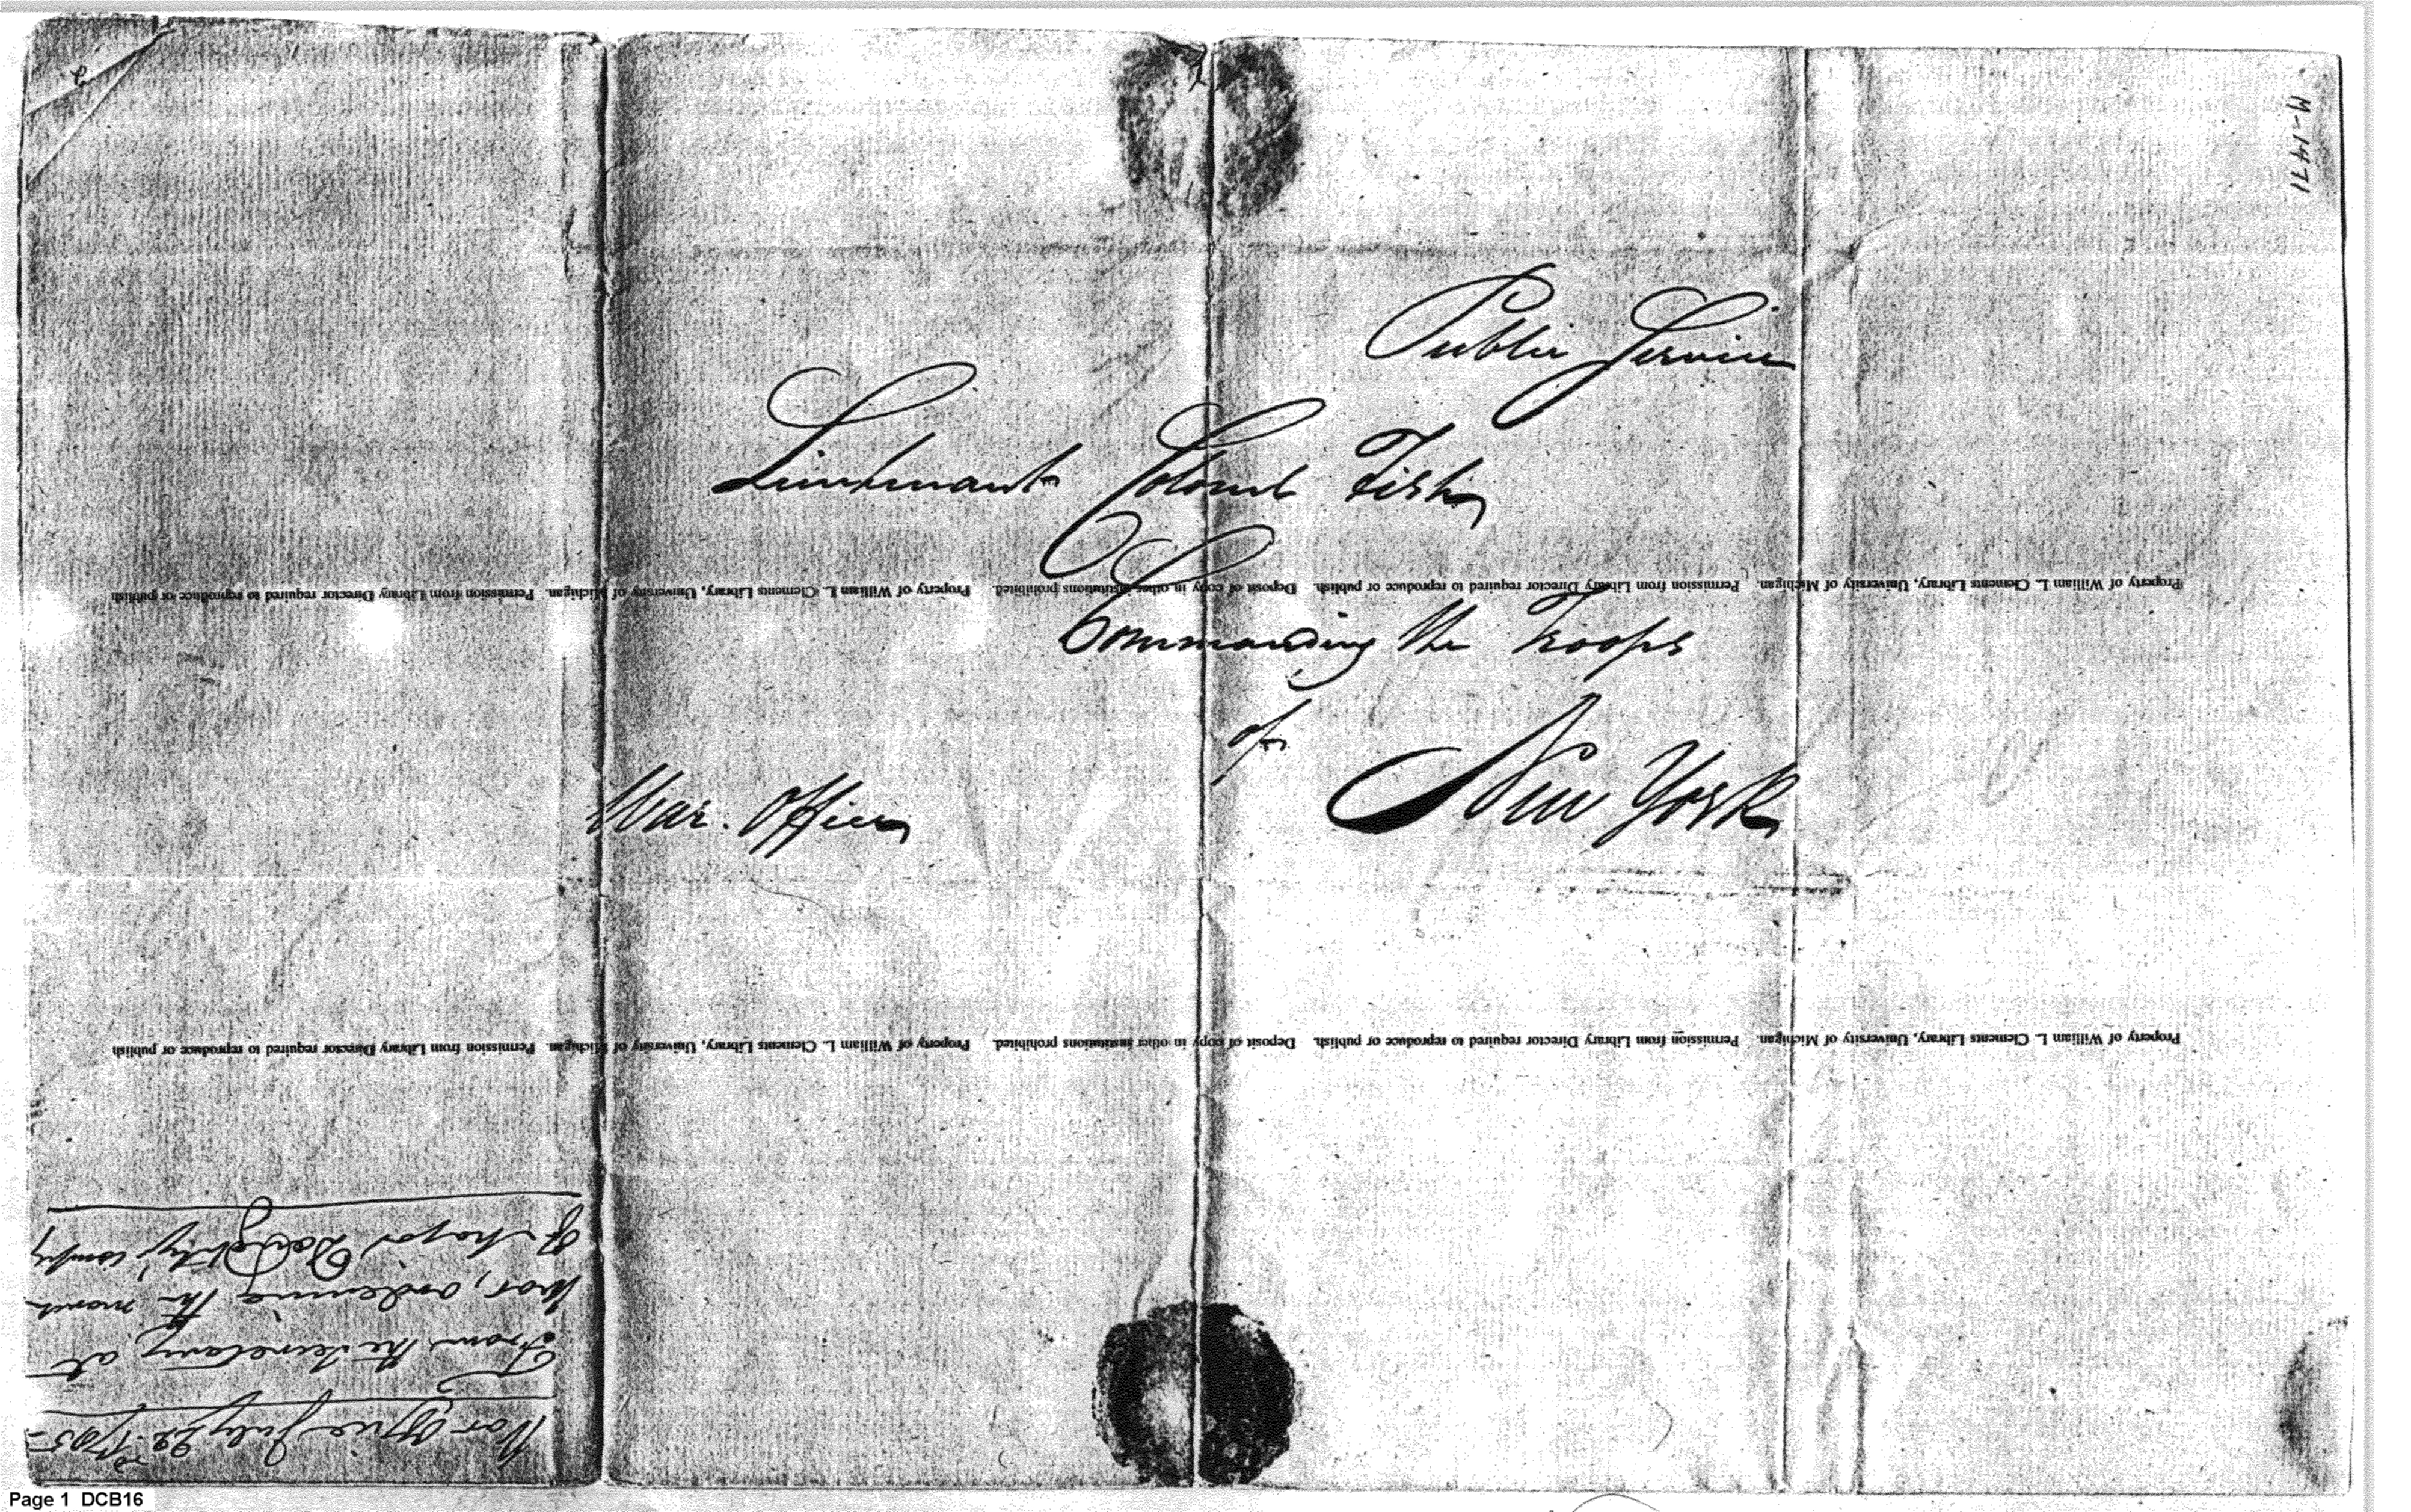 M-1471
2
Public Service
Lieutenant Colonel Fish
Commanding the Troops
of
New York
War. Office
Property of William L. Clements Library, University of Michigan. Permission from Library Director required to reproduce or publish. Deposit of copy in other institutions prohibited. Property of William L. Clements Library, University of Michigan. Permission from Library Director required to reproduce or publish
Property of William L. Clements Library, University of Michigan. Permission from Library Director required to reproduce or publish. Deposit of copy in other institutions prohibited. Property of William L. Clements Library, University of Michigan. Permission from Library Director required to reproduce or publish
War Office July 22d. 1785
From the Secretary at
War, ordering the march
of Major Doughty's
Page 1 DCB16